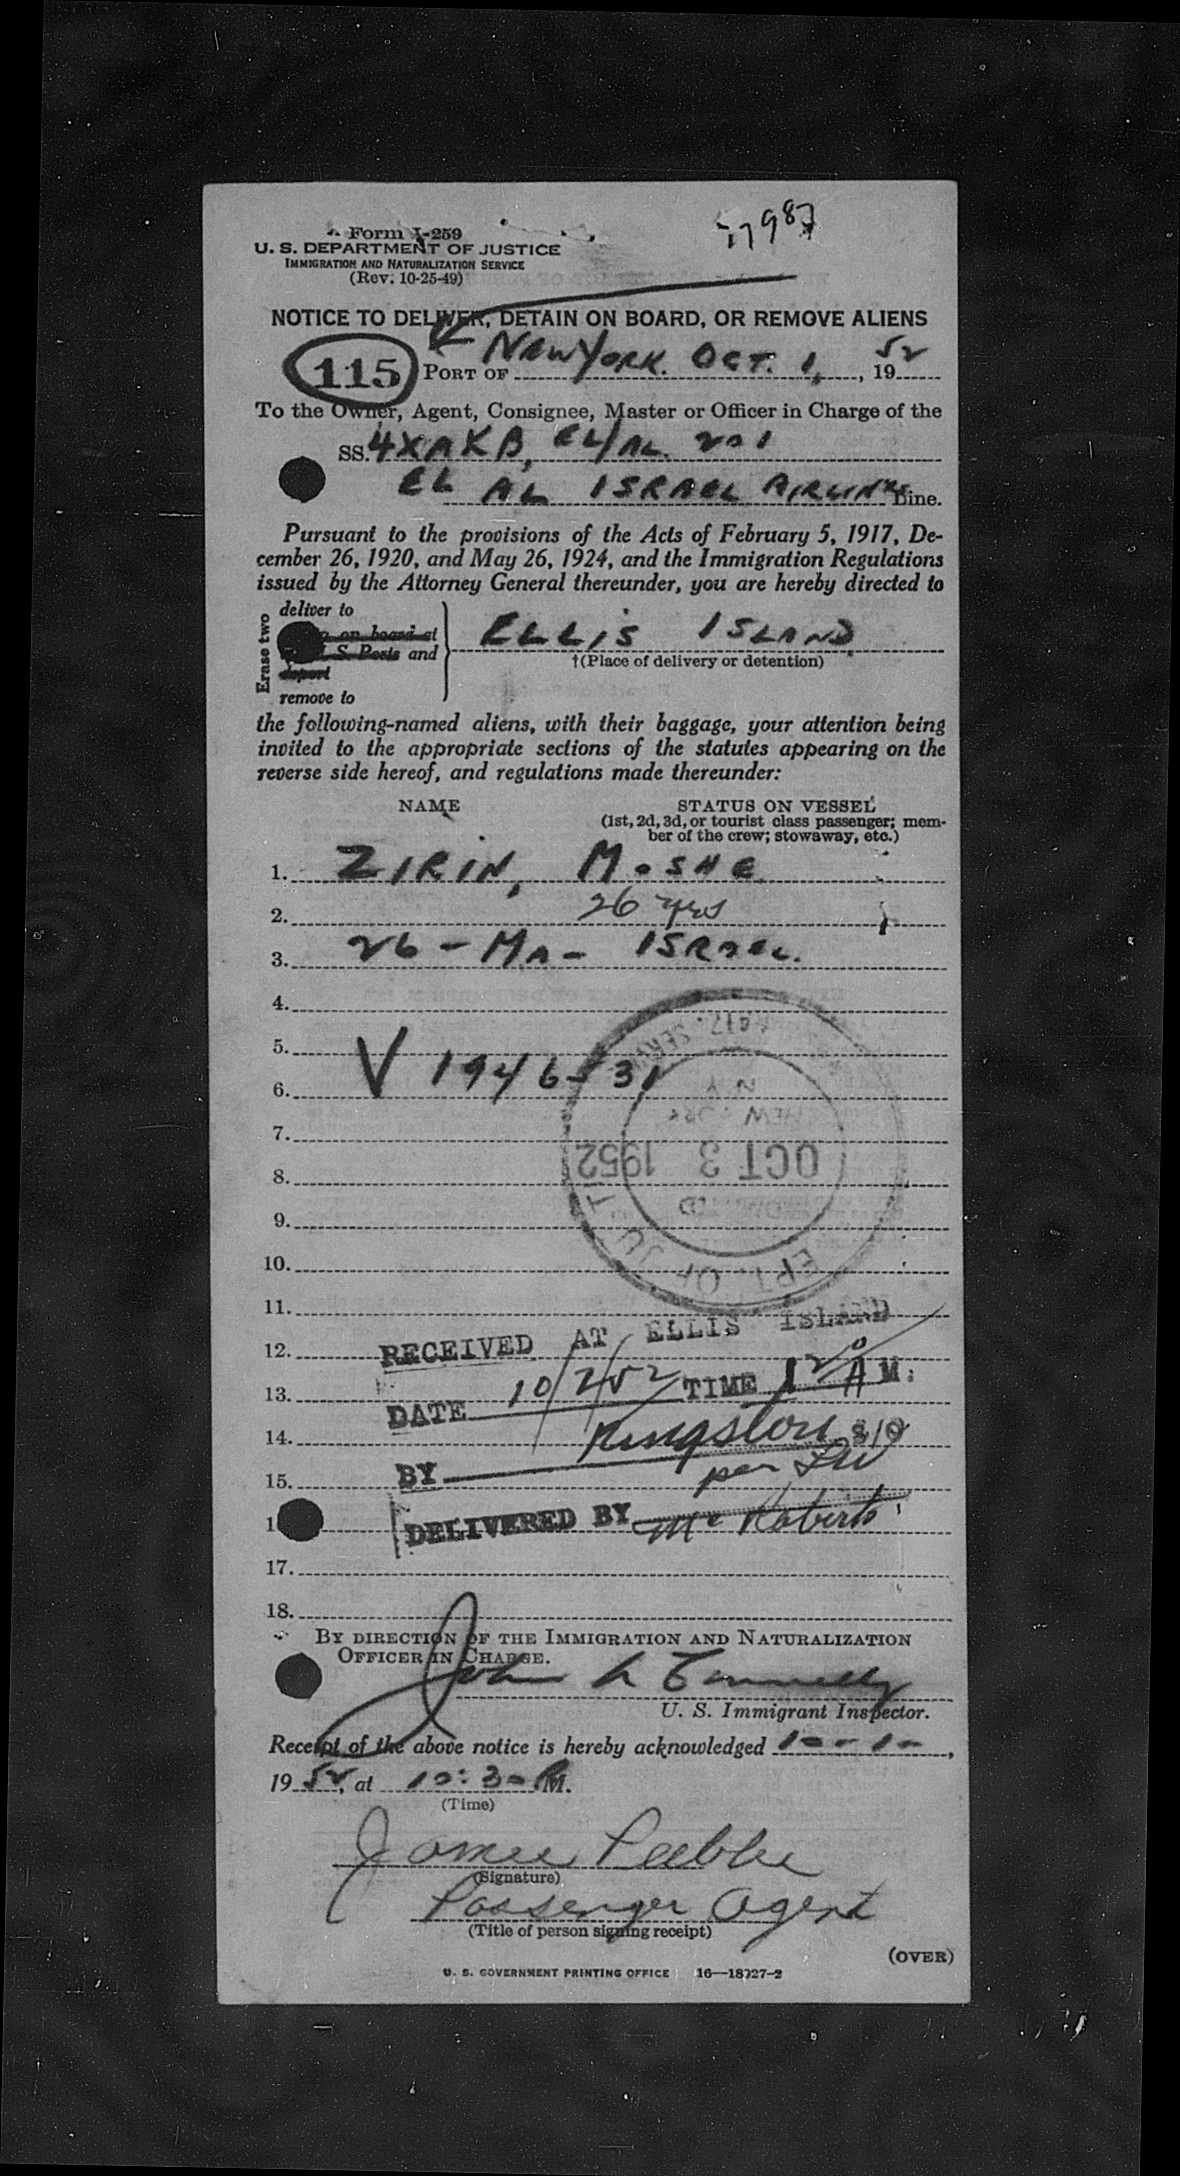 Form I-259
U. S. DEPARTMENT OF JUSTICE
IMMIGRATION AND NATURALIZATION SERVICE
(Rev. 10-25-49)
17987
NOTICE TO DELIVER, DETAIN ON BOARD, OR REMOVE ALIENS
115 PORT OF NEW YORK. OCT. 1, , 19 52
To the Owner, Agent, Consignee, Master or Officer in Charge of the
SS. 4XAKB, EL/AL. 201
EL AL ISRAEL AIRLINES Line.
Pursuant to the provisions of the Acts of February 5, 1917, De-
cember 26, 1920, and May 26, 1924, and the Immigration Regulations
issued by the Attorney General thereunder, you are hereby directed to
Erase two
deliver to
on board at
U. S. Posts and
deport
remove to
ELLIS ISLAND
†(Place of delivery or detention)
the following-named aliens, with their baggage, your attention being
invited to the appropriate sections of the statutes appearing on the
reverse side hereof, and regulations made thereunder:
NAME STATUS ON VESSEL
(1st, 2d, 3d, or tourist class passenger; mem-
ber of the crew; stowaway, etc.)
1. ZIRIN, MOSHE
2. 26 yrs
3. 26 - MA - ISRAEL.
4.
5.
6. V 1946531
7.
8.
9.
10.
NEW YORK
N.Y.
OCT 3 1952
DEPT. OF JUSTICE
11.
12. RECEIVED AT ELLIS ISLAND
13. DATE 10/2/52 TIME 1 20 A M.
14. Kingston
15. BY per
1 DELIVERED BY Mc Roberts
17.
18.
BY DIRECTION OF THE IMMIGRATION AND NATURALIZATION
OFFICER IN CHARGE.
John A Connelly
U. S. Immigrant Inspector.
Receipt of the above notice is hereby acknowledged 10-1- ,
19 52, at 10:30 P M.
(Time)
James Peebles
(Signature)
Passenger Agent
(Title of person signing receipt)
(OVER)
U. S. GOVERNMENT PRINTING OFFICE 16—18727-2